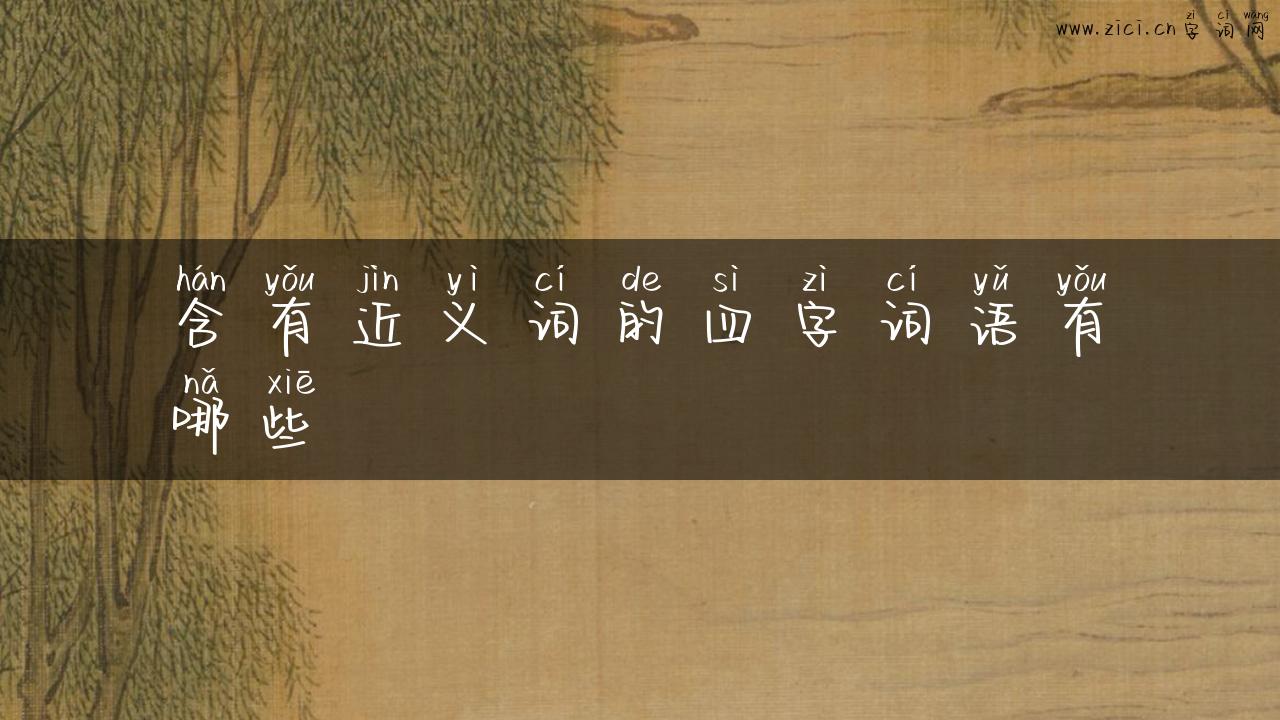 zì cí wǎng
www.zici.cn字词网
hán yǒu jìn yì cí de sì zì cí yǔ yǒu
含有近义词的四字词语有
nǎ xiē
哪些